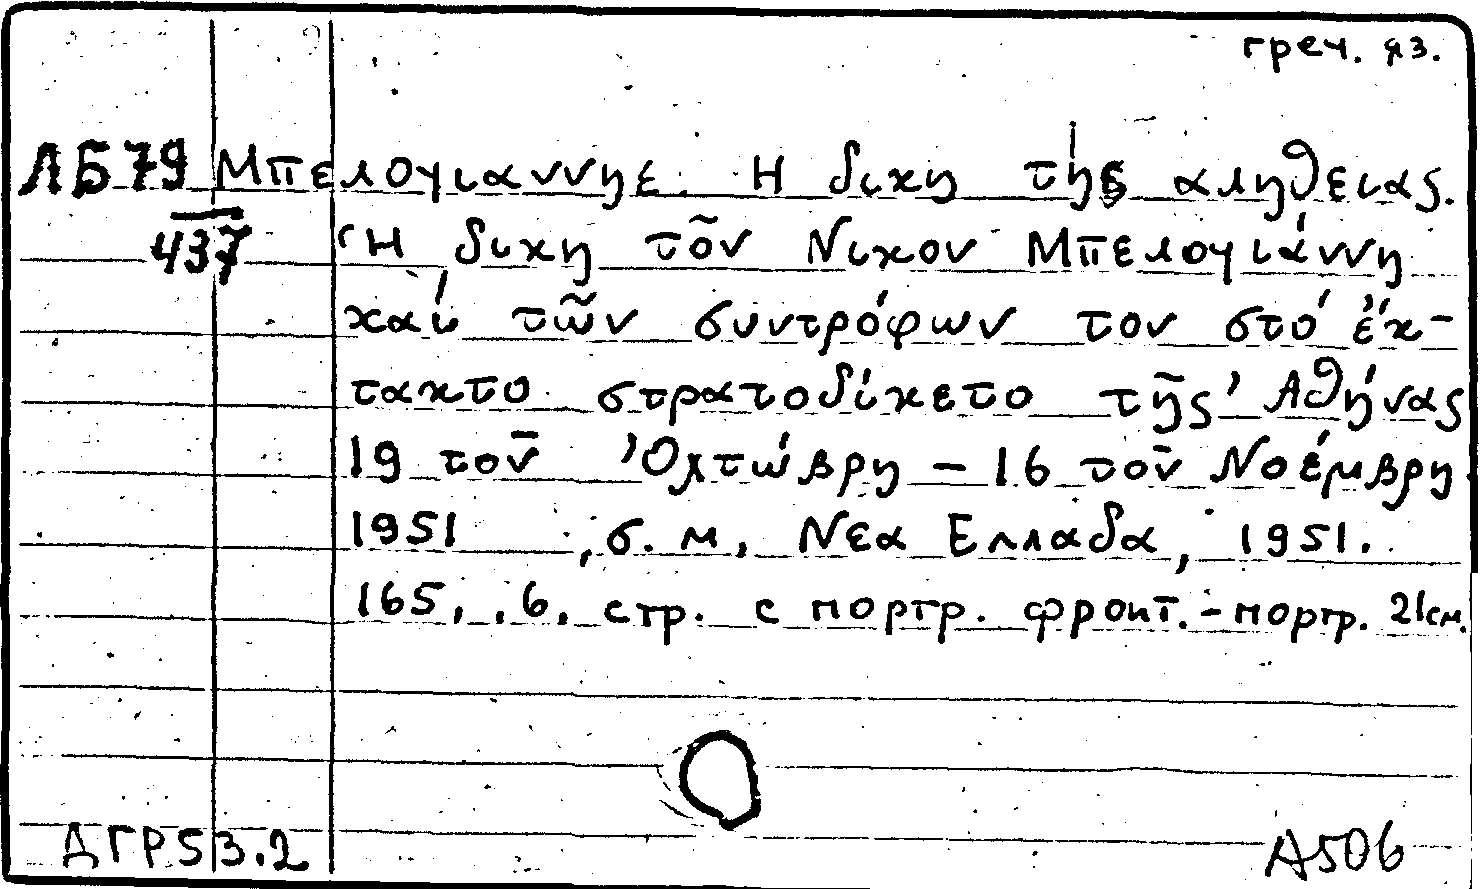 греч. яз.
ЛБ79 Μπελογιαννης. Η δικη τής αληθειας.
437 Ἡ δικη τοῦ Νικου Μπελογιάννη
καί τῶν συντρόφων του στό ἐκ-
τακτο στρατοδίκετο τῆς Ἀθήνας
19 τοῦ Ὀχτώβρη – 16 τοῦ Νοέμβρη
1951 , σ. м, Νεα Ελλαδα, 1951.
165, .6. стр. с портр. фронт.-портр. 21см.
ДГР53.2 А506